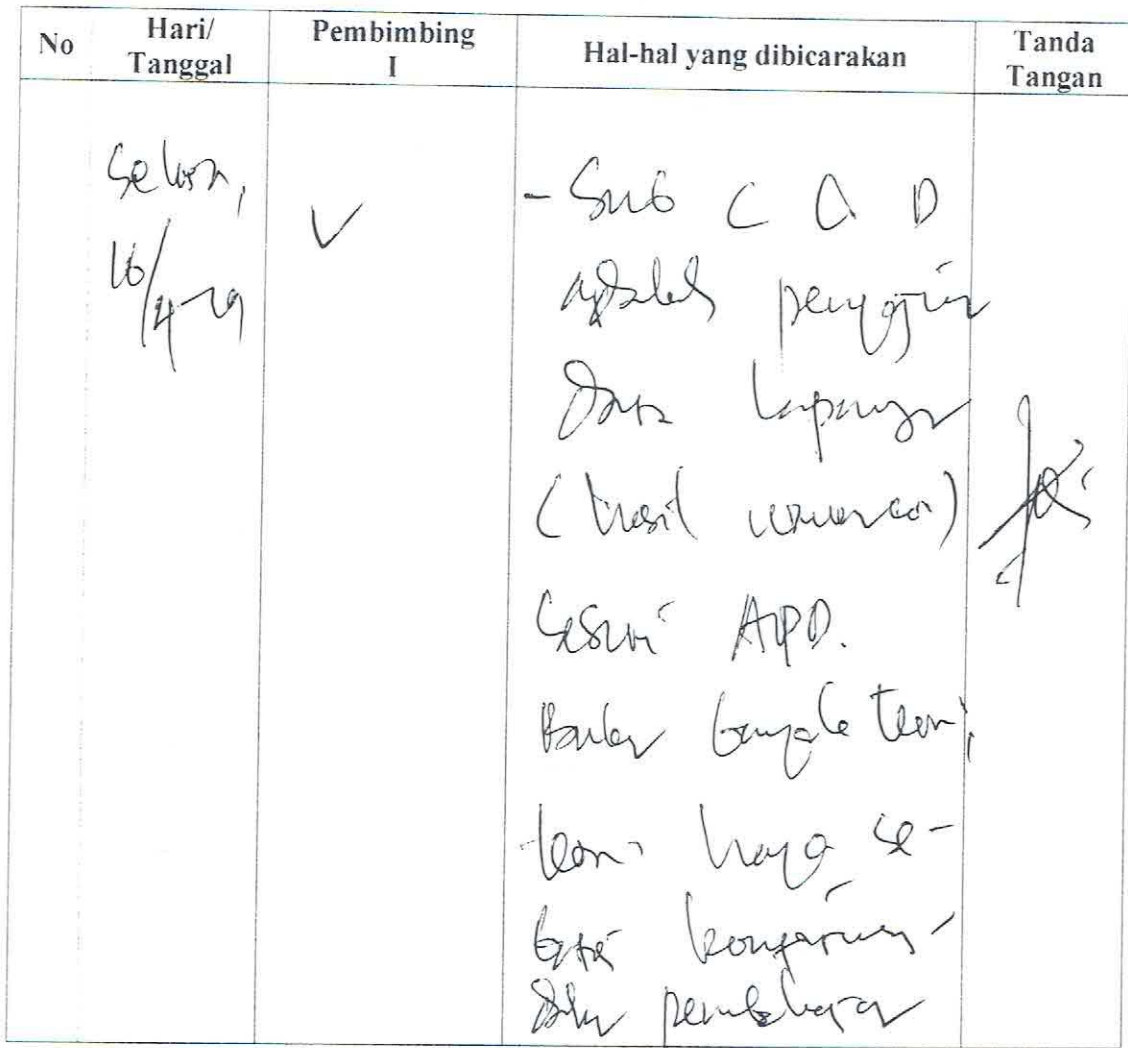 No
Hari/
Tanggal
Pembimbing
I
Hal-hal yang dibicarakan
Tanda
Tangan
Selasa,
16/4-19
V
- Sub C Q D
adalah penyajian
Data lapangan
(hasil wawancara)
Sesuai APD.
Bukan banyak teori,
teori hanya se-
bagai
dlm pembahasan